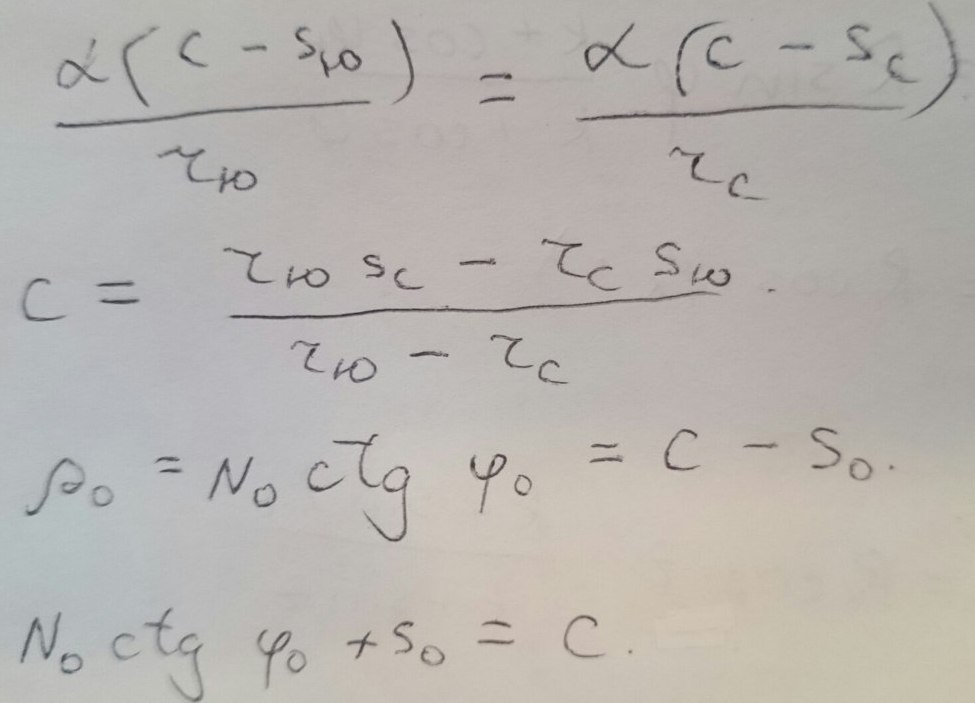 α(c - s_ю) / r_ю = α(c - s_c) / r_c
c = (r_ю s_c - r_c s_ю) / (r_ю - r_c).
ρ₀ = N₀ ctg φ₀ = c - s₀.
N₀ ctg φ₀ + s₀ = c.